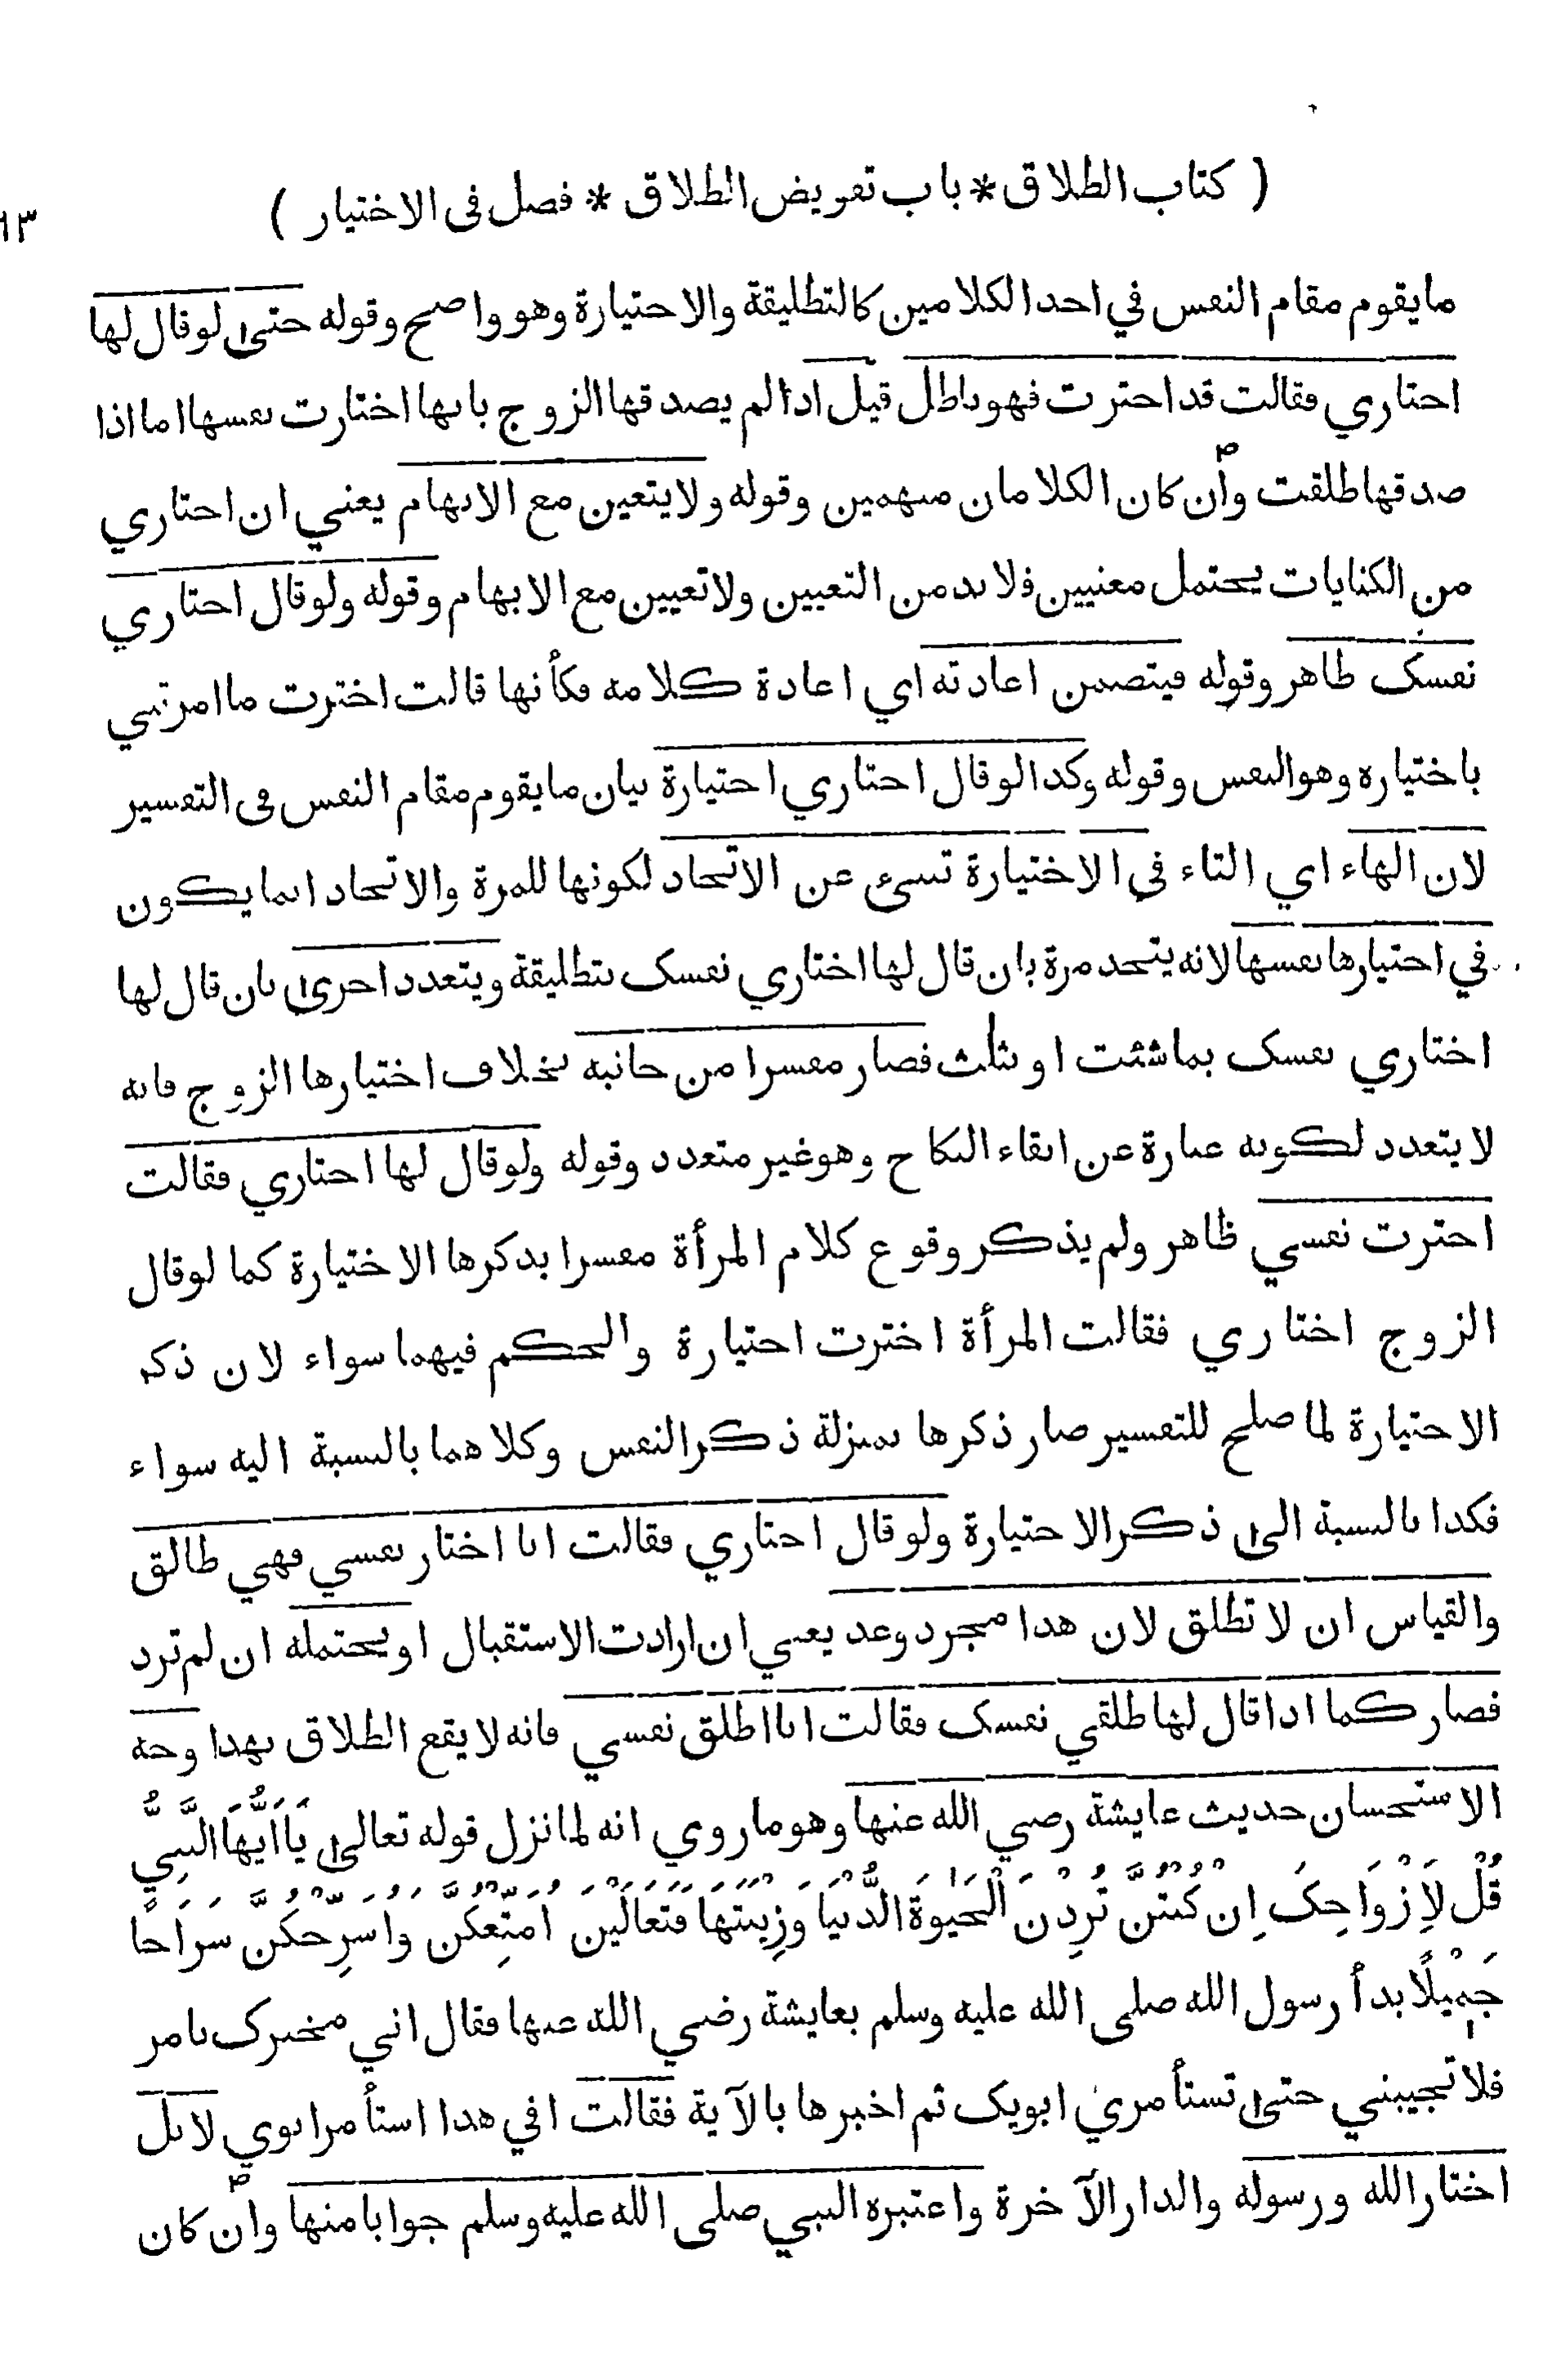 ( كتاب الطلاق * باب تفويض الطلاق * فصل فى الاختيار )
مايقوم مقام النفس في احد الكلامين كالتطليقة والاختيارة وهو واضح وقوله حتىٰ لوقال لها
اختاري فقالت قد اخترت فهو باطل قيل اذا لم يصدقها الزوج بانها اختارت نفسها اما اذا
صدقها طلقت وأن كان الكلامان مبهمين وقوله ولايتعين مع الابهام يعني ان اختاري
من الكنايات يحتمل معنيين فلابد من التعيين ولاتعيين مع الابهام وقوله ولوقال اختاري
نفسك ظاهر وقوله فيتضمن اعادته اي اعادة كلامه فكأنها قالت اخترت ما امرتني
باختياره وهو النفس وقوله وكذا لوقال اختاري اختيارة بيان مايقوم مقام النفس فى التفسير
لان الهاء اي التاء في الاختيارة تنبئ عن الاتحاد لكونها للمرة والاتحاد انمايكون
في اختيارها نفسها لانه يتحد مرة بان قال لها اختاري نفسك بتطليقة ويتعدد اخرىٰ بان قال لها
اختاري نفسك بماشئت او بثلث فصار مفسرا من جانبه بخلاف اختيارها الزوج فانه
لايتعدد لكونه عبارة عن ابقاء النكاح وهو غير متعدد وقوله ولوقال لها اختاري فقالت
اخترت نفسي ظاهر ولم يذكر وقوع كلام المرأة مفسرا بذكرها الاختيارة كما لوقال
الزوج اختاري فقالت المرأة اخترت اختيارة والحكم فيهما سواء لان ذكر
الاختيارة لما صلح للتفسير صار ذكرها بمنزلة ذكر النفس وكلاهما بالنسبة اليه سواء
فكذا بالنسبة الىٰ ذكر الاختيارة ولوقال اختاري فقالت انا اختار نفسي فهي طالق
والقياس ان لا تطلق لان هذا مجرد وعد يعني ان ارادت الاستقبال او يحتمله ان لم ترد
فصار كما اذا قال لها طلقي نفسك فقالت انا اطلق نفسي فانه لا يقع الطلاق بهذا وجه
الاستحسان حديث عايشة رضي الله عنها وهو ماروي انه لما نزل قوله تعالىٰ يَا اَيُّهَا النَّبِيُّ
قُلْ لِاَزْوَاجِكَ اِنْ كُنْتُنَّ تُرِدْنَ الْحَيٰوةَ الدُّنْيَا وَزِيْنَتَهَا فَتَعَالَيْنَ اُمَتِّعْكُنَّ وَاُسَرِّحْكُنَّ سَرَاحًا
جَمِيْلًا بدأ رسول الله صلى الله عليه وسلم بعايشة رضي الله عنها فقال اني مخبرك بامر
فلا تجيبني حتىٰ تستأمري ابويك ثم اخبرها بالآية فقالت افي هذا استأمر ابوي لا بل
اختار الله ورسوله والدار الآخرة واعتبره النبي صلى الله عليه وسلم جوابا منها وأن كان